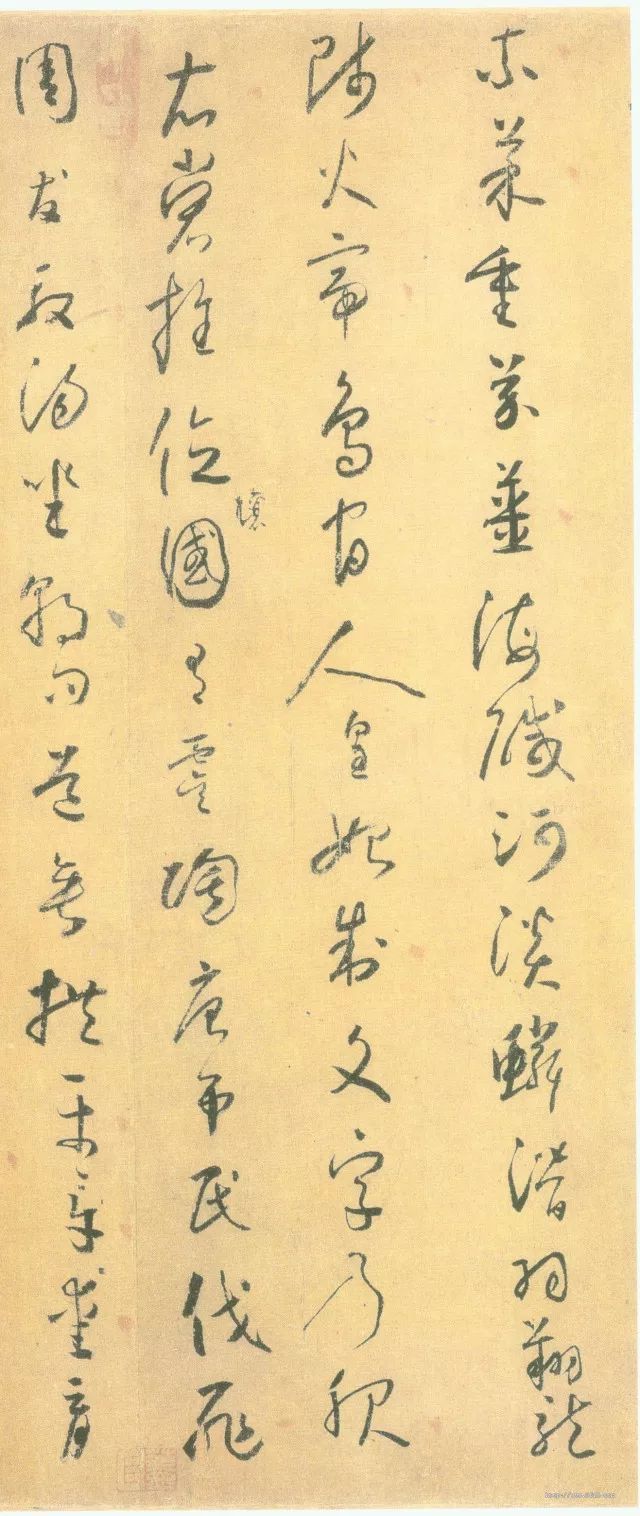 柰菜重芥薑海醎河淡鱗潛羽翔龍
師火帝鳥官人皇始制文字乃服
衣裳推位讓國有虞陶唐弔民伐罪
周發殷湯坐朝問道垂拱平章愛育